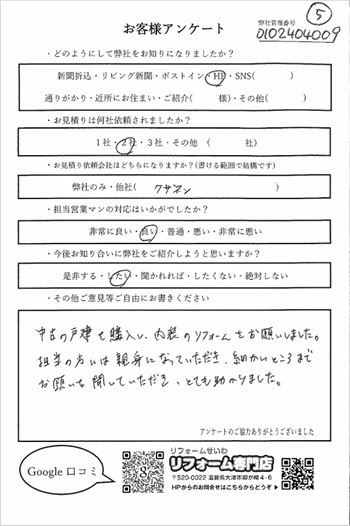 お客様アンケート
弊社管理番号
⑤
D102404009
・どのようにして弊社をお知りになりましたか？
新聞折込・リビング新聞・ポストイン・HP・SNS( )
通りがかり・近所にお住まい・ご紹介( 様)・その他( )
・お見積りは何社依頼されましたか？
1社・2社・3社・その他 ( 社)
・お見積り依頼会社はどちらになりますか？(書ける範囲で結構です)
弊社のみ・他社( クサネン )
・担当営業マンの対応はいかがでしたか？
非常に良い・良い・普通・悪い・非常に悪い
・今後お知り合いに弊社をご紹介しようと思いますか？
是非する・したい・聞かれれば・したくない・絶対しない
・その他ご意見等ご自由にお書きください
中古の戸建を購入し、内装のリフォームをお願いしました。
担当の方には親身になっていただき、細かいところまで
お願いを聞いていただき、とても助かりました。
アンケートのご協力ありがとうございました
Google 口コミ
リフォームせいわ
リフォーム専門店
〒520-0022 滋賀県大津市柳が崎4-6
HPからのお問合せはこちらからどうぞ▶